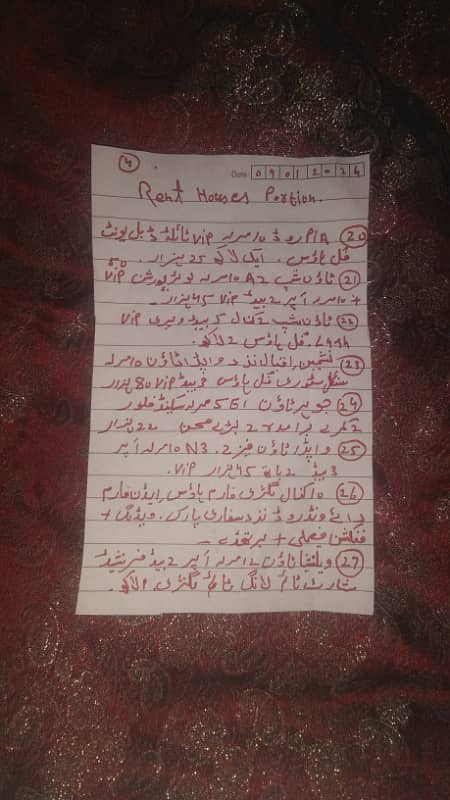 4
Date: 09 01 2024
Rent Houses Portion.
20 PIA روڈ 10 مرلہ VIP ٹائلڈ ڈبل یونٹ
فل ہاؤس . ایک لاکھ 25 ہزار .
21 ٹاؤن شپ A2 10 مرلہ لوئر پورشن VIP 50
+ 10 مرلہ اپر 2 بیڈ VIP 45 ہزار
22 ٹاؤن شپ 2 کنال 5 بیڈ ویری VIP
فل ہاؤس 2 لاکھ .
23 نشیمن اقبال نزد واپڈا ٹاؤن 10 مرلہ
سنگل سٹوری فل ہاؤس 3 بیڈ VIP 80 ہزار
24 جوہر ٹاؤن E1 5 مرلہ سیکنڈ فلور
2 کمرے برآمدہ 2 بڑے صحن 22 ہزار
25 واپڈا ٹاؤن فیز 2 . N3 10 مرلہ اپر
3 بیڈ 2 باتھ 65 ہزار VIP .
26 10 کنال لگژری فارم ہاؤس ایڈن فارم
رائے ونڈ روڈ نزد سفاری پارک . ویڈنگ +
فنکشن فیملی + برتھڈے
27 ویلنشیا ٹاؤن 10 مرلہ اپر 2 بیڈ فرنشڈ
شارٹ ٹائم لانگ ٹائم لگژری لاکھ .